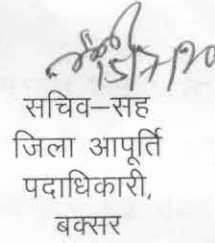 15/7/20
सचिव–सह
जिला आपूर्ति
पदाधिकारी,
बक्सर